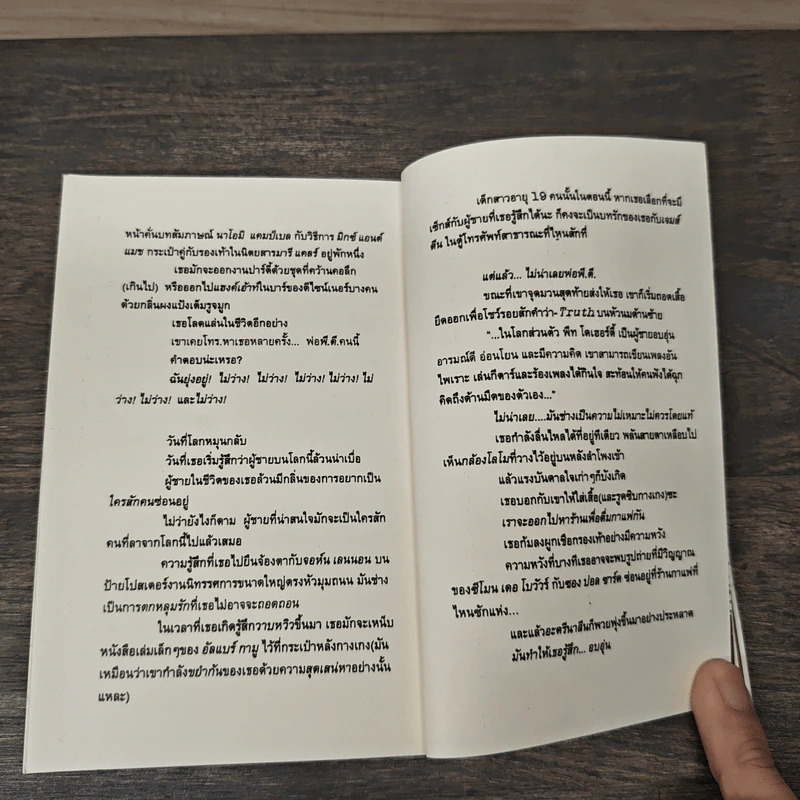 หน้าคั่นบทสัมภาษณ์ นาโอมิ แคมป์เบล กับวิธีการ มิกซ์ แอนด์
แมช กระเป๋าคู่กับรองเท้าในนิตยสารมารี แคลร์ อยู่พักหนึ่ง
เธอมักจะออกงานปาร์ตี้ด้วยชุดที่คว้านคอลึก
(เกินไป) หรือออกไปแฮงค์เอ้าท์ในบาร์ของดีไซน์เนอร์บางคน
ด้วยกลิ่นผงแป้งเต็มรูจมูก
เธอโลดแล่นในชีวิตอีกอย่าง
เขาเคยโทร.หาเธอหลายครั้ง... พ่อพี.ดี.คนนี้
คำตอบน่ะเหรอ?
ฉันยุ่งอยู่! ไม่ว่าง! ไม่ว่าง! ไม่ว่าง! ไม่ว่าง! ไม่
ว่าง! ไม่ว่าง! และไม่ว่าง!
วันที่โลกหมุนกลับ
วันที่เธอเริ่มรู้สึกว่าผู้ชายบนโลกนี้ล้วนน่าเบื่อ
ผู้ชายในชีวิตของเธอล้วนมีกลิ่นของการอยากเป็น
ใครสักคนซ่อนอยู่
ไม่ว่ายังไงก็ตาม ผู้ชายที่น่าสนใจมักจะเป็นใครสัก
คนที่ลาจากโลกนี้ไปแล้วเสมอ
ความรู้สึกที่เธอไปยืนจ้องตากับจอห์น เลนนอน บน
ป้ายโปสเตอร์งานนิทรรศการขนาดใหญ่ตรงหัวมุมถนน มันช่าง
เป็นการตกหลุมรักที่เธอไม่อาจจะถอดถอน
ในเวลาที่เธอเกิดรู้สึกวาบหวิวขึ้นมา เธอมักจะเหน็บ
หนังสือเล่มเล็กๆของ อัลแบร์ กามู ไว้ที่กระเป๋าหลังกางเกง(มัน
เหมือนว่าเขากำลังขยำก้นของเธอด้วยความสุดเสน่หาอย่างนั้น
แหละ)
เด็กสาวอายุ 19 คนนั้นในตอนนี้ หากเธอเลือกที่จะมี
เซ็กส์กับผู้ชายที่เธอรู้สึกได้นะ ก็คงจะเป็นบทรักของเธอกับเจมส์
ดีน ในตู้โทรศัพท์สาธารณะที่ไหนสักที่
แต่แล้ว... ไม่น่าเลยพ่อพี.ดี.
ขณะที่เขาจุดมวนสุดท้ายส่งให้เธอ เขาก็เริ่มถอดเสื้อ
ยืดออกเพื่อโชว์รอยสักคำว่า- Truth บนหัวนมด้านซ้าย
"...ในโลกส่วนตัว พีท โดเฮอร์ตี้ เป็นผู้ชายอบอุ่น
อารมณ์ดี อ่อนโยน และมีความคิด เขาสามารถเขียนเพลงอัน
ไพเราะ เล่นกีตาร์และร้องเพลงได้กินใจ สะท้อนให้คนฟังได้ฉุก
คิดถึงด้านมืดของตัวเอง..."
ไม่น่าเลย....มันช่างเป็นความไม่เหมาะไม่ควรโดยแท้
เธอกำลังลื่นไหลได้ที่อยู่ทีเดียว พลันสายตาเหลือบไป
เห็นกล้องโลโมที่วางไว้อยู่บนหลังลำโพงเข้า
แล้วแรงบันดาลใจเก่าๆก็บังเกิด
เธอบอกกับเขาให้ใส่เสื้อ(และรูดซิบกางเกง)ซะ
เราจะออกไปหาร้านเพื่อดื่มกาแฟกัน
เธอก้มลงผูกเชือกรองเท้าอย่างมีความหวัง
ความหวังที่บางทีเธออาจจะพบรูปถ่ายที่มีวิญญาณ
ของซีโมน เดอ โบวัวร์ กับชอง ปอล ซาร์ต ซ่อนอยู่ที่ร้านกาแฟที่
ไหนซักแห่ง...
และแล้วอะดรีนาลีนก็พวยพุ่งขึ้นมาอย่างประหลาด
มันทำให้เธอรู้สึก... อบอุ่น